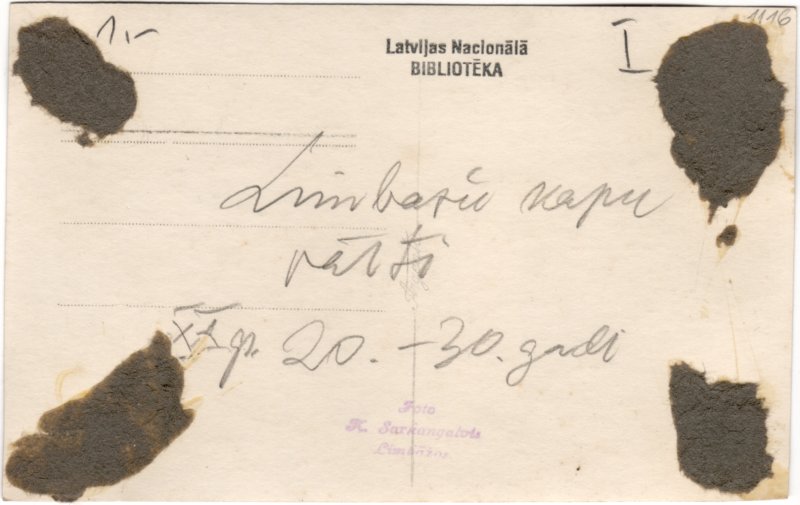 1,-
1116
I
Latvijas Nacionālā
BIBLIOTĒKA
Limbažu kapu
vārti
XX gs. 20. - 30. gadi
Foto
K. Sarkangalvis
Limbažos